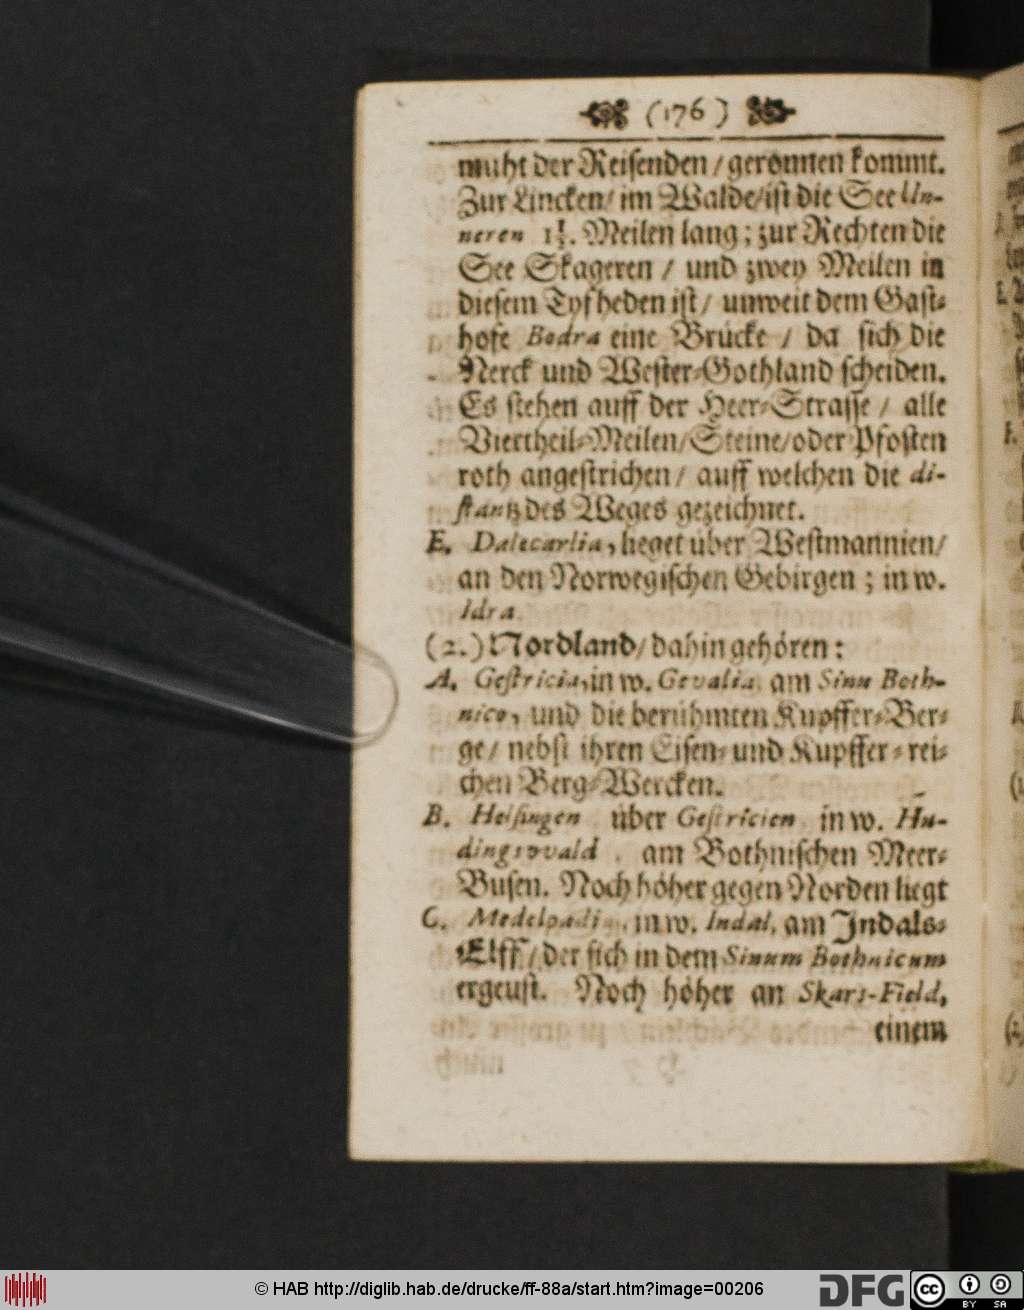 (176)
muht der Reisenden / geronnen kommt.
Zur Lincken / im Walde / ist die See Un-
neren 1½. Meilen lang; zur Rechten die
See Skageren / und zwey Meilen in
diesem Tyfheden ist / unweit dem Gast-
hofe Bodra eine Brücke / da sich die
Nerck und Wester-Gothland scheiden.
Es stehen auff der Heer-Strasse / alle
Viertheil-Meilen / Steine / oder Pfosten
roth angestrichen / auff welchen die di-
stantz des Weges gezeichnet.
E. Dalecarlia, lieget über Westmannien /
an den Norwegischen Gebirgen; in w.
Idra.
(2.) Nordland / dahin gehören:
A. Gestricia, in w. Gevalia am Sinu Both-
nico, und die berühmten Kupffer-Ber-
ge / nebst ihren Eisen- und Kupffer-rei-
chen Berg-Wercken.
B. Helsingen über Gestricien in w. Hu-
dingsvvald, am Bothnischen Meer-
Busen. Noch höher gegen Norden liegt
C. Medelpadia, in w. Indal, am Indals-
Elff / der sich in dem Sinum Bothnicum
ergeust. Noch höher an Skars-Field,
einem
© HAB http://diglib.hab.de/drucke/ff-88a/start.htm?image=00206
DFG
cc BY SA